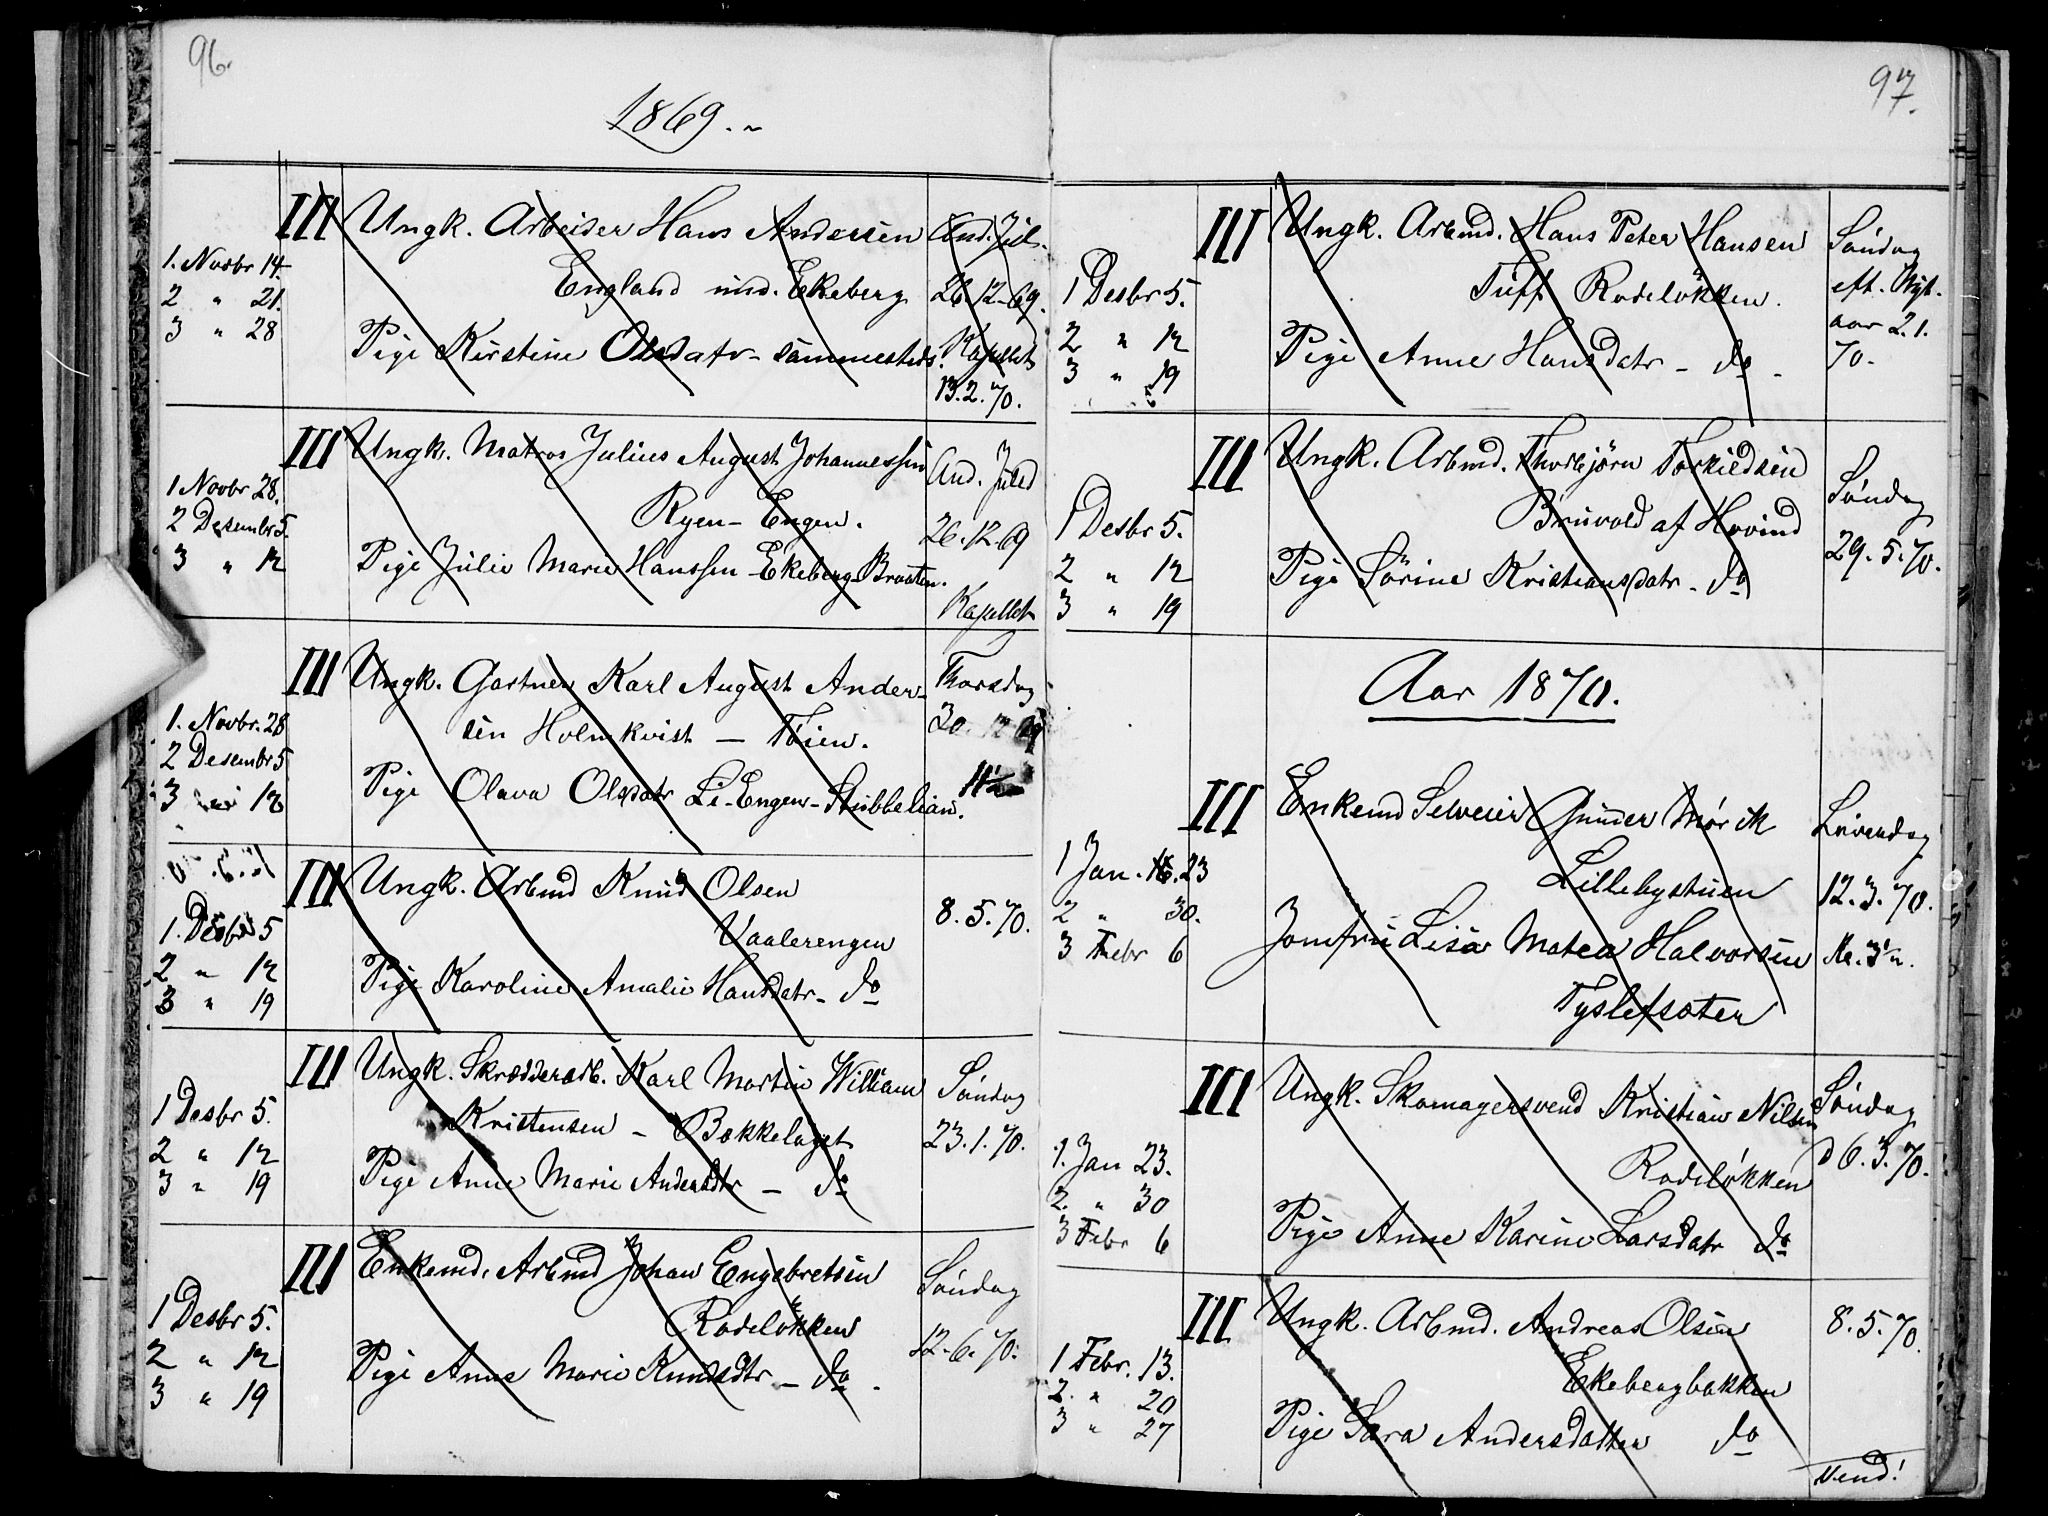 96.
1869.
III Ungk. Arbeider Hans Andersen And. Jul.
1. Novbr 14.
2 " 21.
3 " 28
England und. Ekeberg 26.12.69.
Pige Kirstine Olsdatr - sammesteds. Kapellet
13.2.70.
III Ungk. Matros Julius August Johannessen And. Juled
1 Novbr 28.
2 Desembr 5.
3 " 12
Ryen - Engen. 26.12.69
Pige Julie Marie Hanssen - Ekeberg Braaten.
Kapellet
III Ungk. Gartner Karl August Ander- Thorsdag
sen Holmkvist - Töien. 30. 12 69
1. Novbr. 28
2 Desembr 5
3 12
Pige Olava Olsdatr Li-Engen - Stubbelian. 11½
III Ungk. Arbmd Knud Olsen
Vaalerengen 8.5.70.
1. Desbr 5
2 " 12
3 " 19
Pige Karoline Amalie Hansdatr - do
III Ungk. Skrædderarb. Karl Martin William Söndag
1 Desbr 5.
2 " 12
3 " 19
Kristensen - Bækkelaget 23.1.70.
Pige Anne Marie Andersdtr - do
III Enkemd. Arbmd Johan Engebretsen Söndag
Rodelökken 12.6.70.
1 Desbr 5.
2 " 12
3 " 19
Pige Anne Marie Knudsdtr - do.
97.
III Ungk. Arbmd. Hans Peter Hansen Söndag
1 Desbr 5.
2 " 12
3 " 19
Tuff Rodelökken. eft. Nyt-
aar 2.1.
Pige Anne Hansdatr - do - 70.
III Ungk. Arbmd. Thorbjörn Torkildsen Söndag
1 Desbr 5.
2 " 12
3 " 19
Bruvold af Hovind 29.5.70.
Pige Sörine Kristiansdatr - do
Aar 1870.
III Enkemd Selveier Gunder Mörck Löverdag
1 Jan. 23
2 " 30.
3 Febr 6
Lillebystuen 12.3.70.
Jomfru Lisa Matea Halvorsen Kl. 3½.
Tyslefsæter
III Ungk. Skomagersvend Kristian Nilsen Söndag
1. Jan 23.
2. " 30
3 Febr 6
Rodelökken d 6.3.70.
Pige Anne Karine Larsdatr do
III Ungk. Arbmd. Andreas Olsen 8.5.70.
1 Febr. 13.
2. " 20
3 " 27
Ekebergbakken
Pige Sara Andersdatter do
Vend!